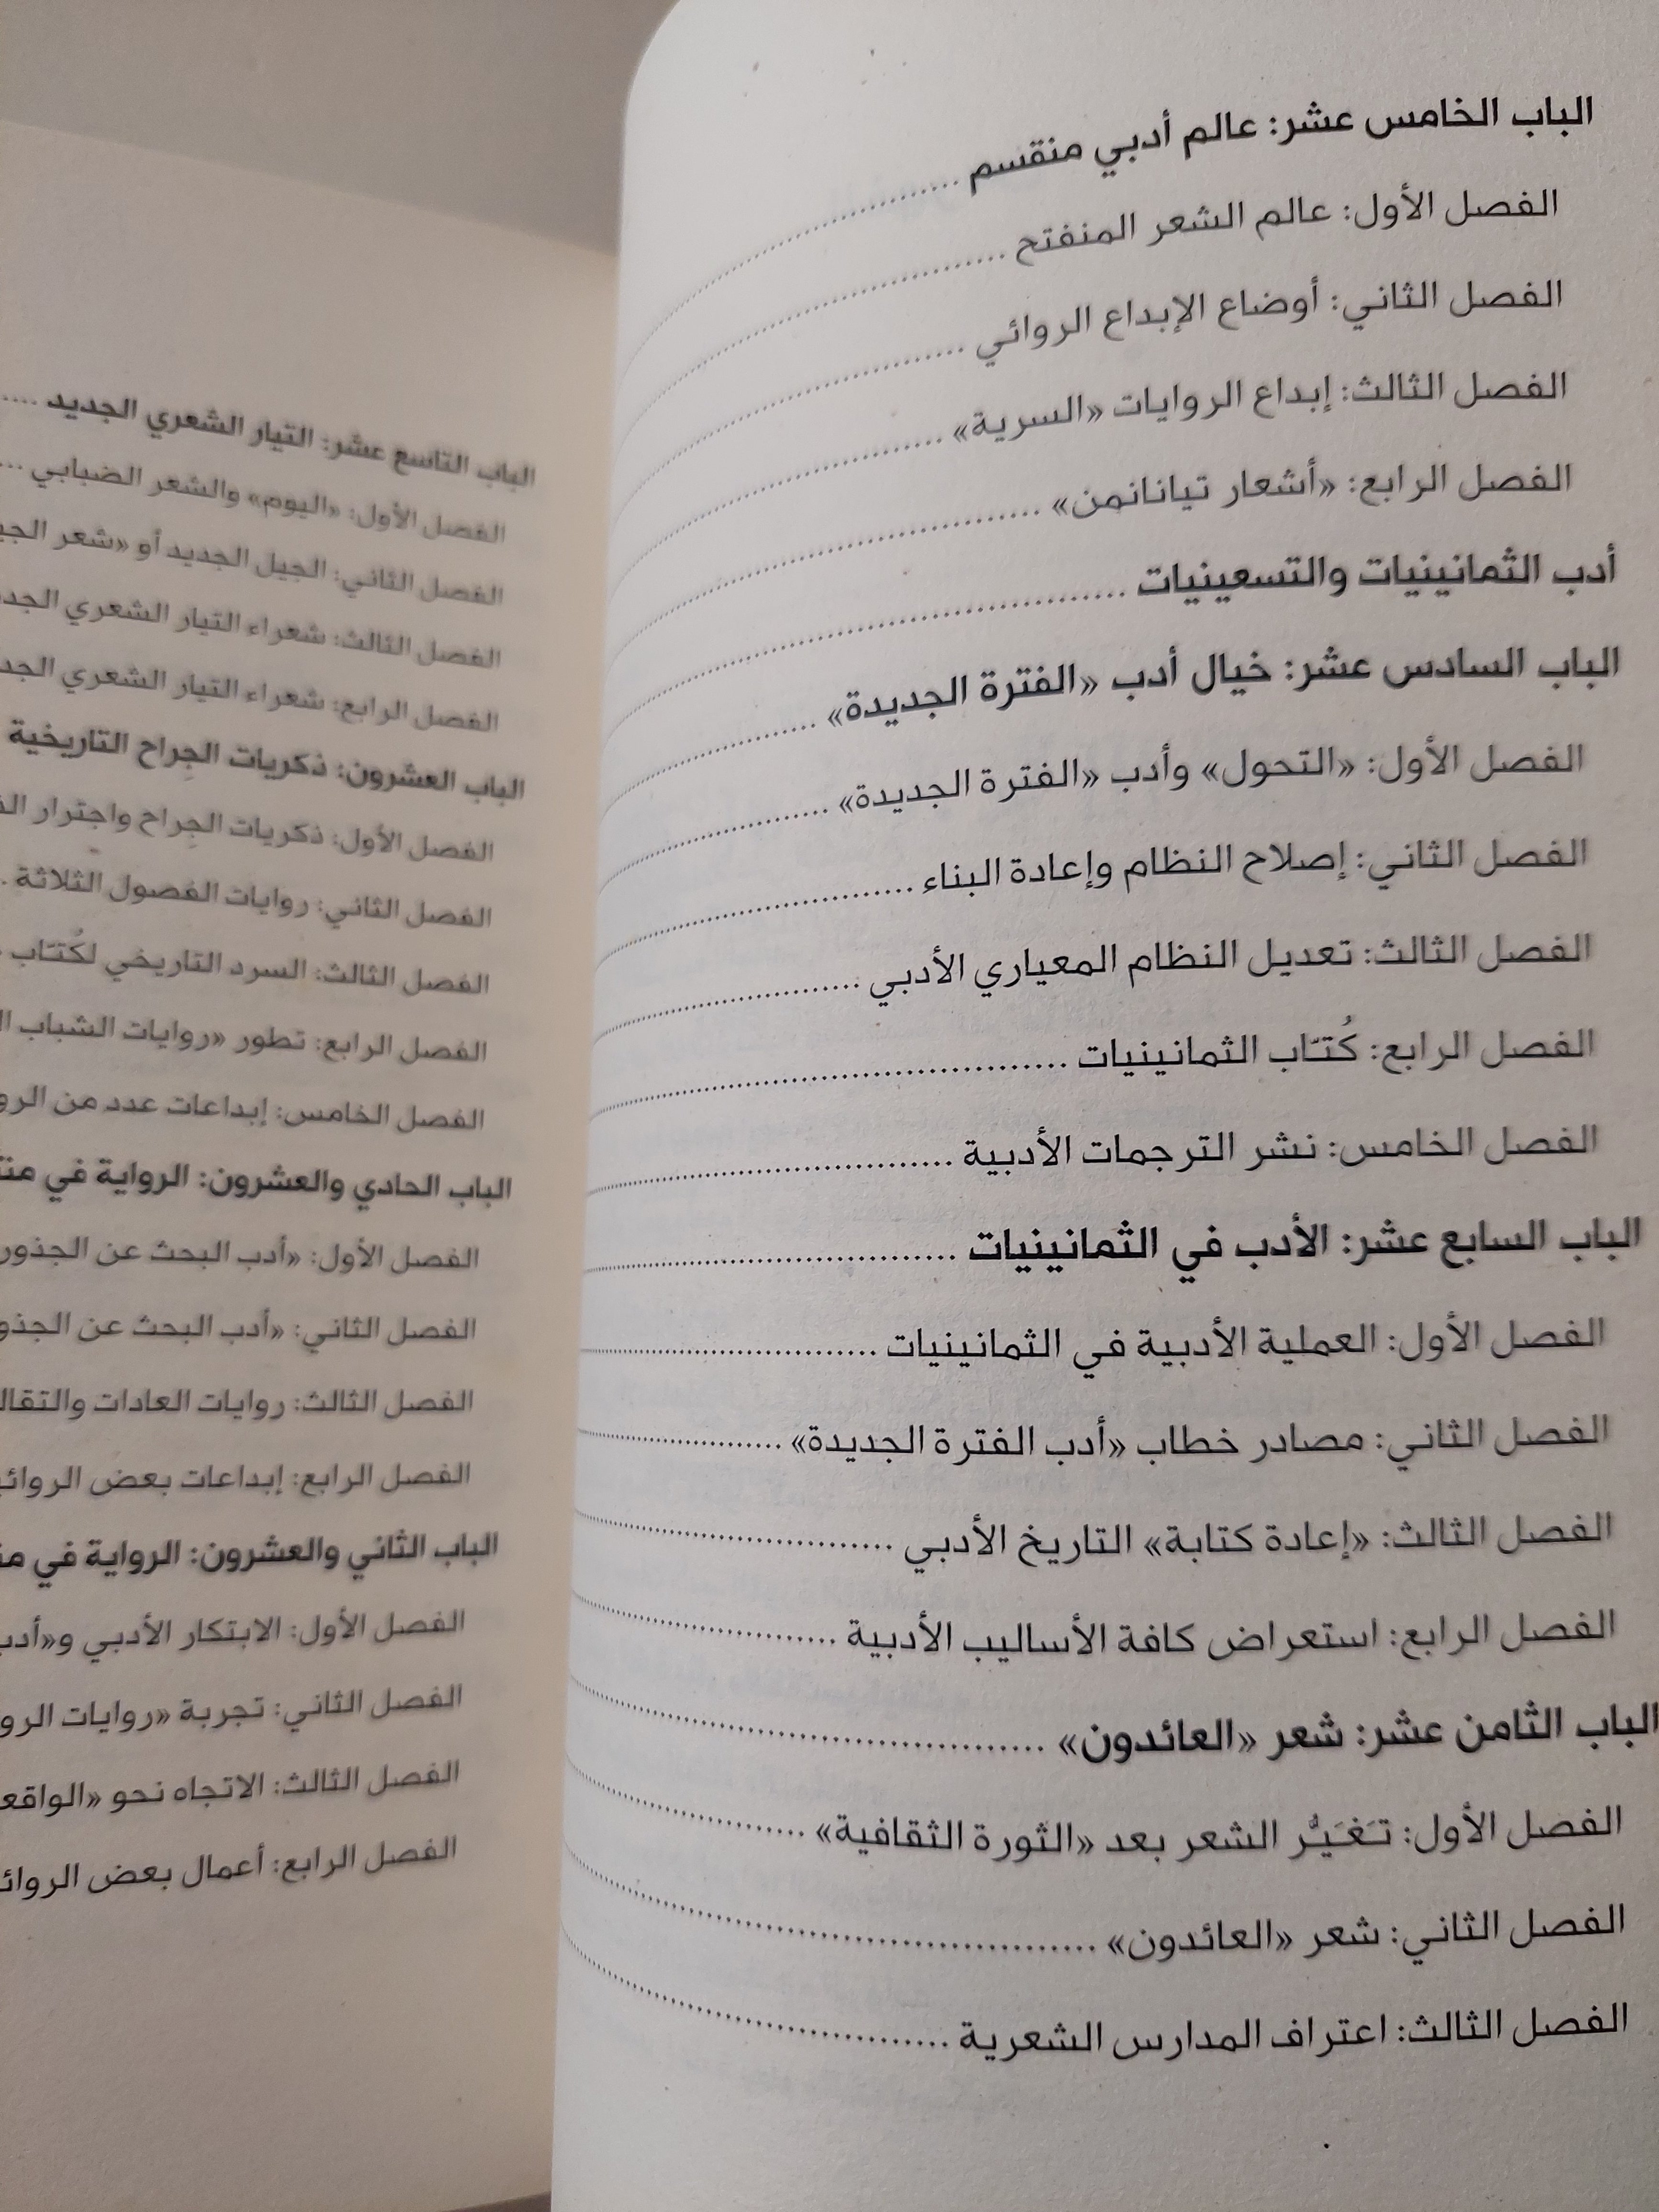 الباب الخامس عشر: عالم أدبي منقسم
الفصل الأول: عالم الشعر المنفتح
الفصل الثاني: أوضاع الإبداع الروائي
الفصل الثالث: إبداع الروايات «السرية»
الفصل الرابع: «أشعار تيانانمن»
أدب الثمانينيات والتسعينيات
الباب السادس عشر: خيال أدب «الفترة الجديدة»
الفصل الأول: «التحول» وأدب «الفترة الجديدة»
الفصل الثاني: إصلاح النظام وإعادة البناء
الفصل الثالث: تعديل النظام المعياري الأدبي
الفصل الرابع: كُتّاب الثمانينيات
الفصل الخامس: نشر الترجمات الأدبية
الباب السابع عشر: الأدب في الثمانينيات
الفصل الأول: العملية الأدبية في الثمانينيات
الفصل الثاني: مصادر خطاب «أدب الفترة الجديدة»
الفصل الثالث: «إعادة كتابة» التاريخ الأدبي
الفصل الرابع: استعراض كافة الأساليب الأدبية
الباب الثامن عشر: شعر «العائدون»
الفصل الأول: تَغَيُّر الشعر بعد «الثورة الثقافية»
الفصل الثاني: شعر «العائدون»
الفصل الثالث: اعتراف المدارس الشعرية
الباب التاسع عشر: التيار الشعري الجديد
الفصل الأول: «اليوم» والشعر الضبابي
الفصل الثاني: الجيل الجديد أو «شعر
الفصل الثالث: شعراء التيار الشعري
الفصل الرابع: شعراء التيار الشعري
الباب العشرون: ذكريات الجراح التاريخية
الفصل الأول: ذكريات الجراح واجترار
الفصل الثاني: روايات الفصول الثلاثة
الفصل الثالث: السرد التاريخي لكُتّاب
الفصل الرابع: تطور «روايات الشباب
الفصل الخامس: إبداعات عدد من
الباب الحادي والعشرون: الرواية في
الفصل الأول: «أدب البحث عن الجذور
الفصل الثاني: «أدب البحث عن
الفصل الثالث: روايات العادات
الفصل الرابع: إبداعات بعض
الباب الثاني والعشرون: الرواية في
الفصل الأول: الابتكار الأدبي
الفصل الثاني: تجربة «روايات
الفصل الثالث: الاتجاه نحو
الفصل الرابع: أعمال بعض